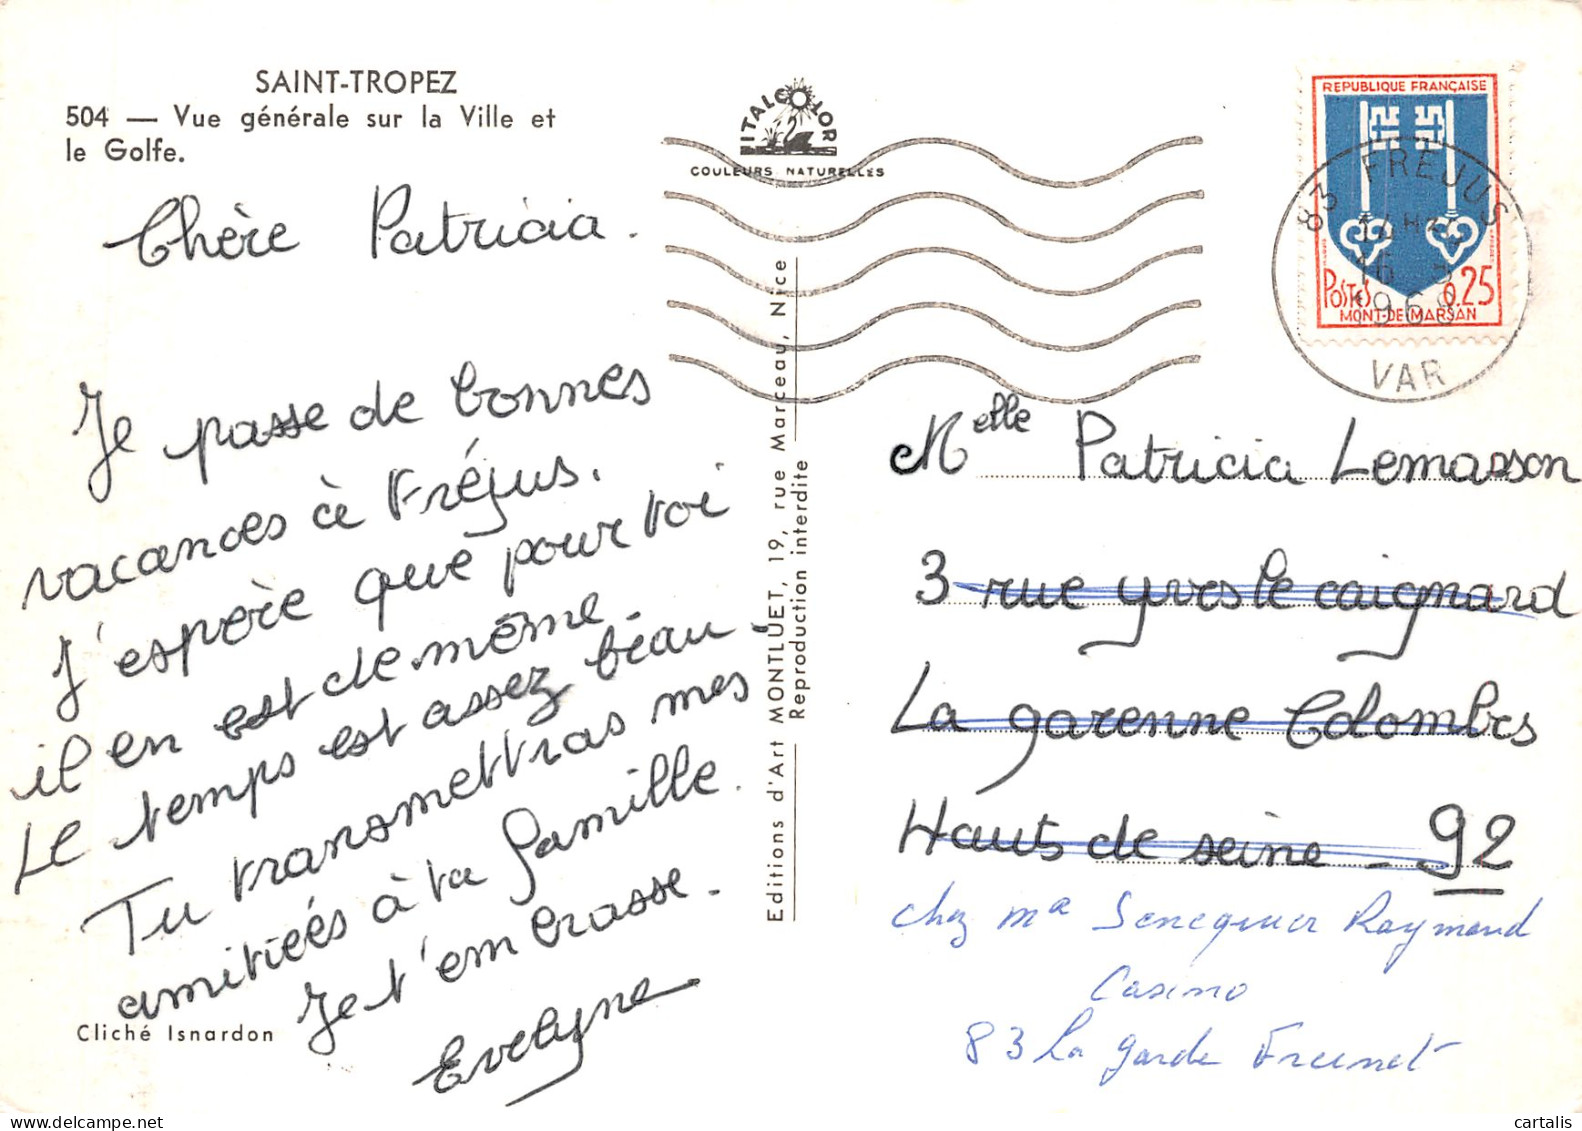 SAINT-TROPEZ
504 — Vue générale sur la Ville et
le Golfe.
Chère Patricia.
Je passe de bonnes
vacances à Fréjus.
J'espère que pour toi
il en est de même.
Le temps est assez beau.
Tu transmettras mes
amitiées à ta famille.
Je t'embrasse.
Evelyne
Cliché Isnardon
ITALCOLOR
COULEURS NATURELLES
Editions d'Art MONTLUET, 19, rue Marceau, Nice
Reproduction interdite
REPUBLIQUE FRANÇAISE
POSTES 0,25
MONT-DE-MARSAN
83 FREJUS
16
196
VAR
Melle Patricia Lemasson
3 rue yves le caignard
La garenne Colombes
Hauts de seine - 92
chez Me Senequier Raymond
Casino
83 La garde Freinet
cartalis